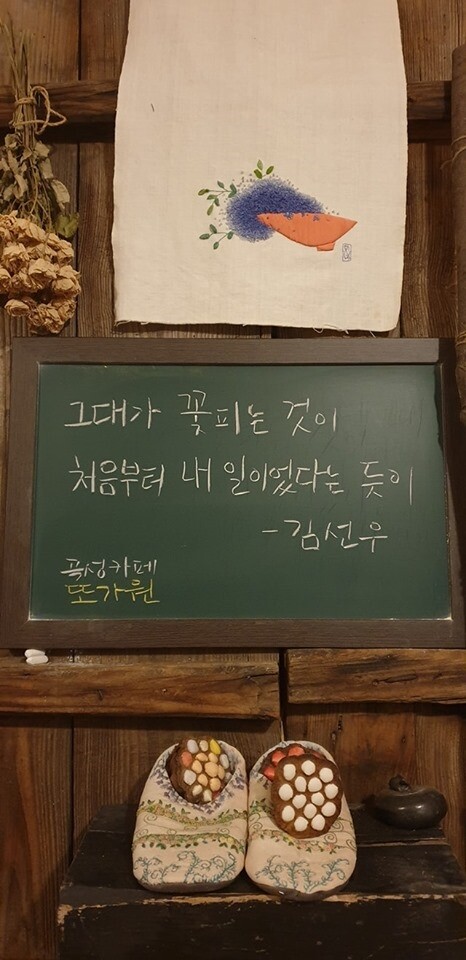 그대가 꽃피는 것이
처음부터 내 일이었다는 듯이
-김선우
폭성카페
또가원